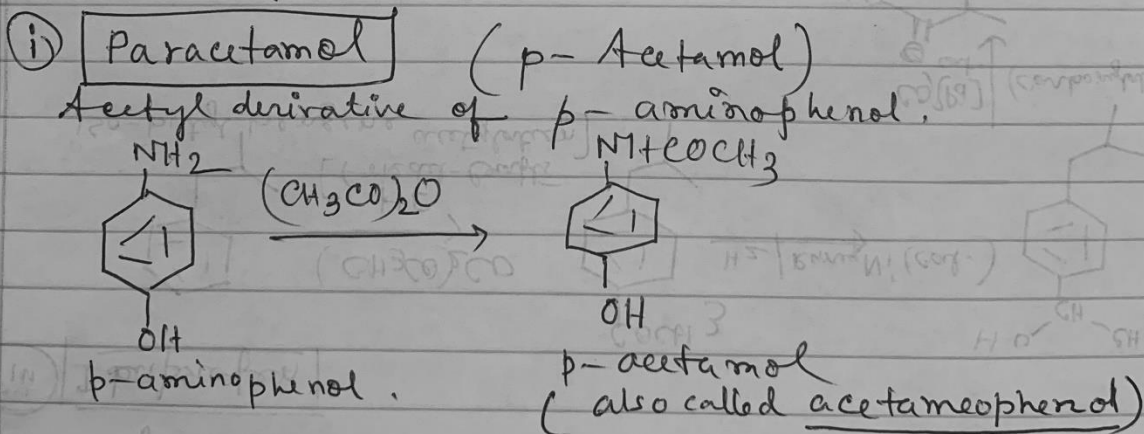 i) Paracetamol (p- Acetamol)
Acetyl derivative of p- aminophenol.
NH2 NHCOCH3
(CH3CO)2O
OH OH
p-aminophenol. p- acetamol
(also called acetameophenol)